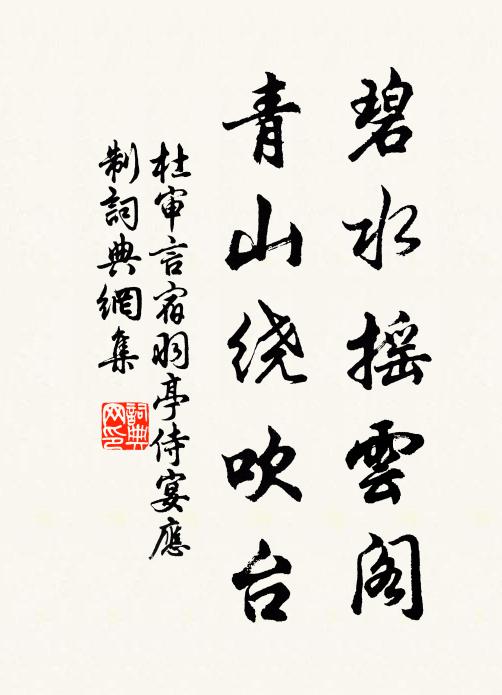 碧水摇雲阁
青山绕吹台
杜审言宿羽亭侍宴應
制詞典網集
詞典网印